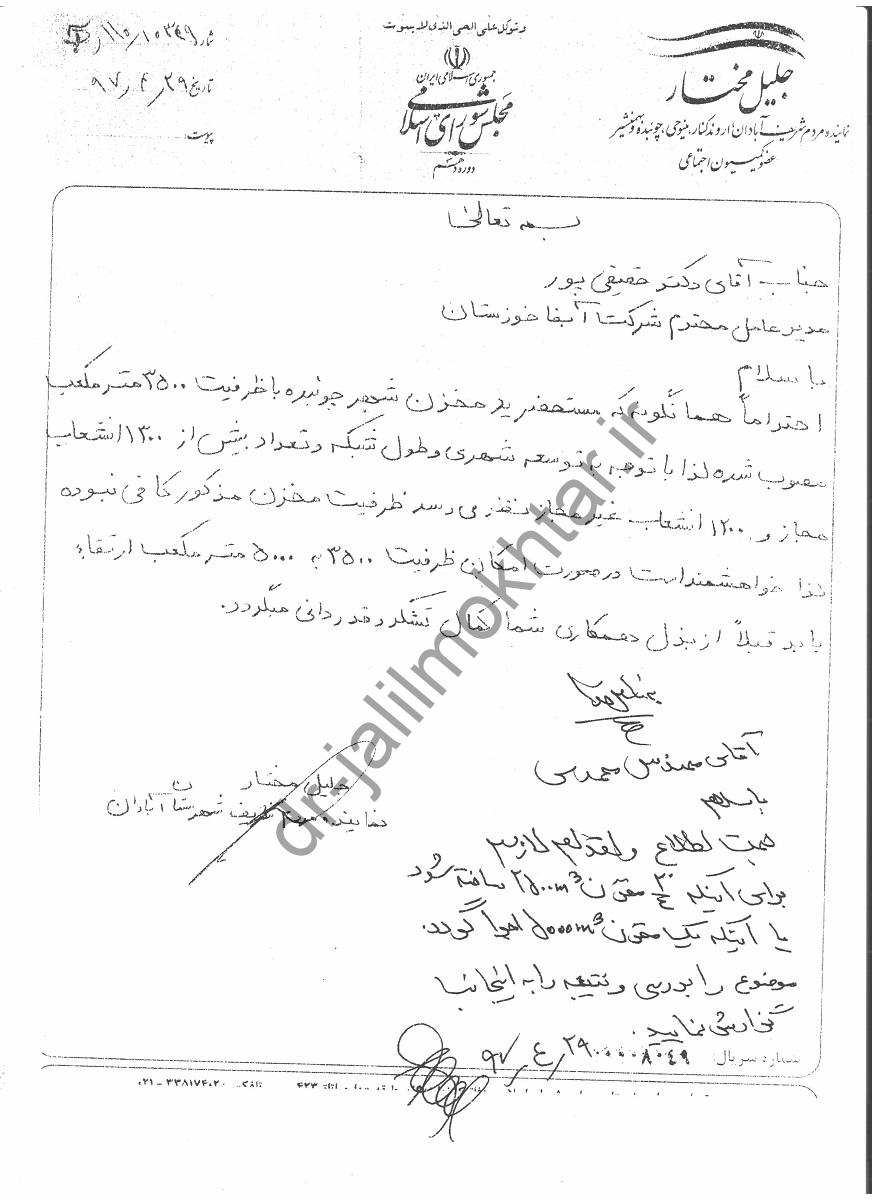 وتوکل علی الحی الذی لا یموت
جمهوری اسلامی ایران
مجلس شورای اسلامی
دوره دهم
جلیل مختار
نماینده مردم شریف آبادان، اروندکنار، مینوحی، چوئبده و بهمنشیر
عضو کمیسیون اجتماعی
شماره ۱۱۰/۱۰۳۴۹
تاریخ ۹۷/۴/۲۹
پیوست:
بسمه تعالی
جناب آقای دکتر حقیقی پور
مدیرعامل محترم شرکت آبفا خوزستان
با سلام
احتراماً همانگونه که مستحضرید مخزن شهر چوئبده با ظرفیت ۳۵۰۰ متر مکعب
مصوب شده لذا با توجه به توسعه شهری و طول شبکه و تعداد بیش از ۱۳۰۰ انشعاب
مجاز و ۱۲۰۰ انشعاب غیر مجاز بنظر می رسد ظرفیت مخزن مذکور کافی نبوده
لذا خواهشمند است در صورت امکان ظرفیت ۳۵۰۰ به ۵۰۰۰ متر مکعب ارتقاء
یابد قبلاً از بذل همکاری شما کمال تشکر و قدردانی میگردد.
جلیل مختار
نماینده مردم شریف شهرستان آبادان
آقای مهندس محمدی
با سلام
جهت اطلاع و اقدام لازم
برای اینکه مخزن ۲۵۰۰m³ ساخته شود
یا اینکه یک مخزن ۵۰۰۰m³ اجرا گردد.
موضوع را بررسی و نتیجه را به اینجانب
گزارش نمایید.
۹۷/۴/۲۹
شماره سریال: ۰۰۰۰۸۰۴۹
تلفکس: ۳۳۸۱۷۴۰۲۰-۰۲۱
dr-jalilmokhtar.ir